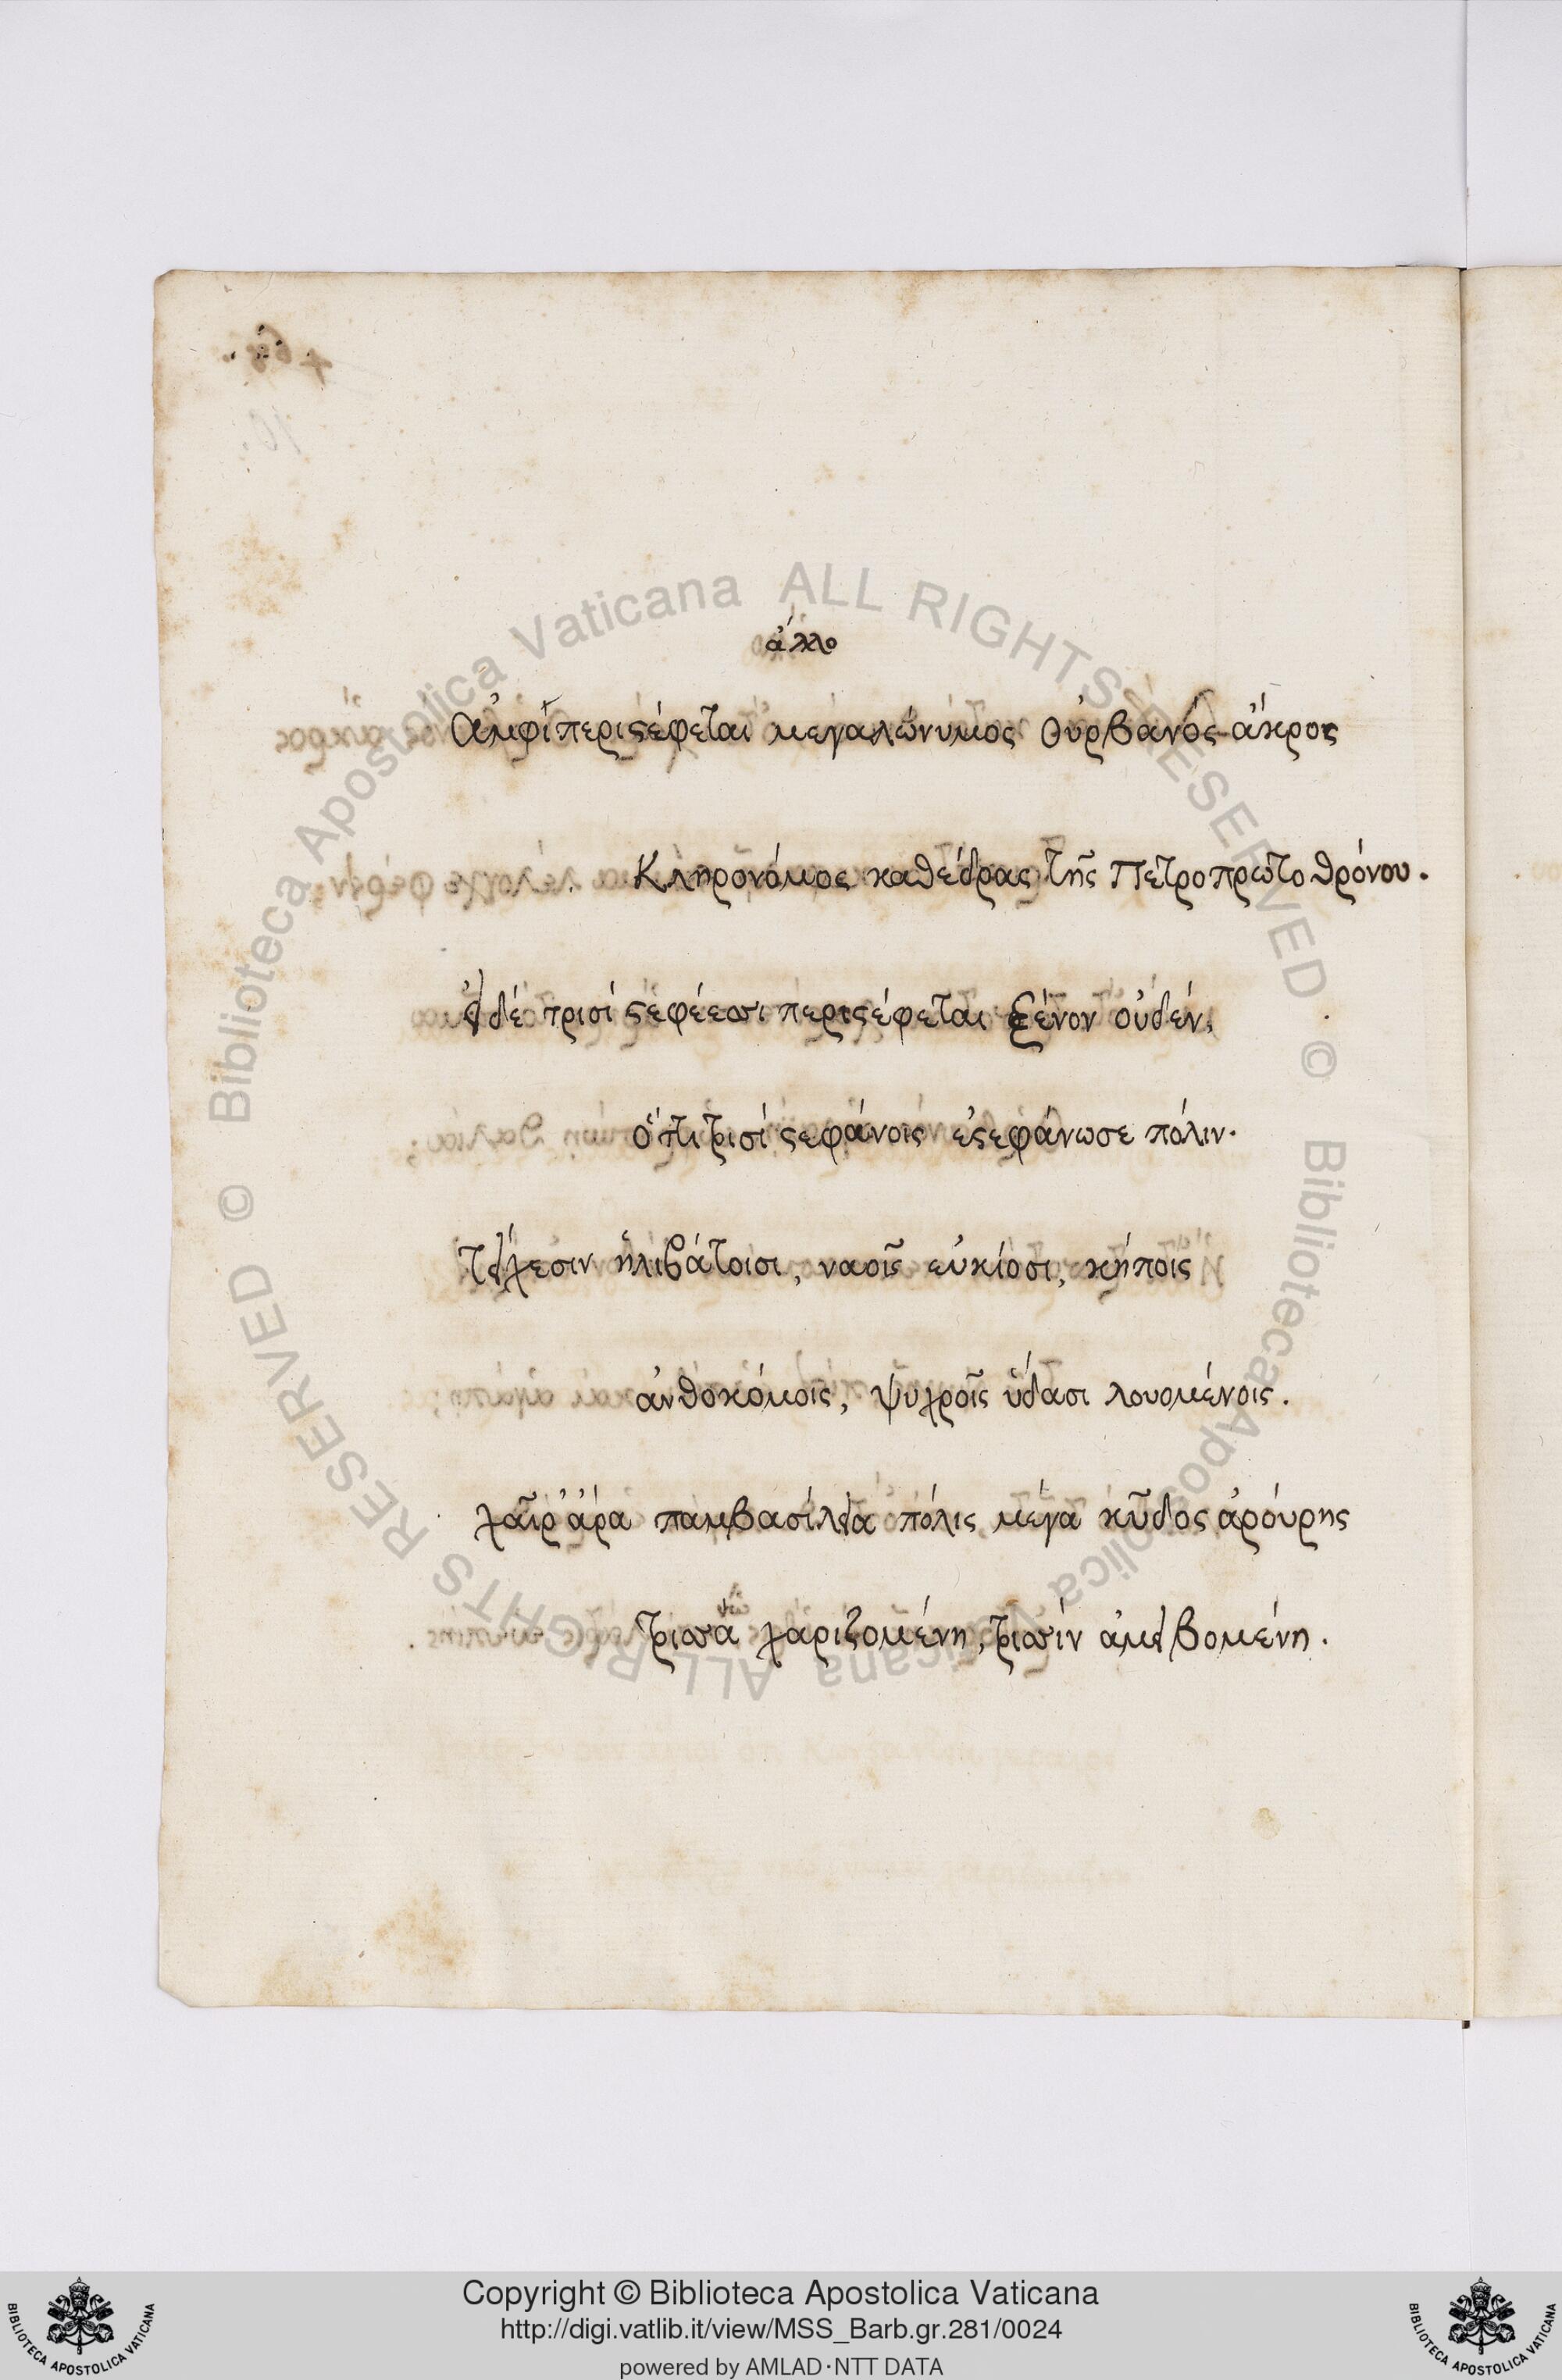 ἄλλο
Ἀμφιπεριστέφεται μεγαλώνυμος Οὐρβανός ἄκρος
Κληρονόμος καθέδρας τῆς Πετροπρωτοθρόνου.
εἰ δέ τρισί στεφέεσσι περιστέφεται ξένον οὐδέν,
ὅττι τρισί στεφάνοις ἐστεφάνωσε πόλιν.
Τείχεσιν ἠλιβάτοισι, ναοῖς εὐκίοσι, κήποις
ἀνθοκόμοις, ψυχροῖς ὕδασι λουομένοις.
χαῖρ' ἄρα παμβασίλεια πόλις μέγα κῦδος ἀρούρης
τρισσὰ χαριζομένη, τρισσίν ἀμειβομένη.
Biblioteca Apostolica Vaticana ALL RIGHTS RESERVED ©
Biblioteca Apostolica Vaticana ALL RIGHTS RESERVED ©
Copyright © Biblioteca Apostolica Vaticana
http://digi.vatlib.it/view/MSS_Barb.gr.281/0024
powered by AMLAD·NTT DATA
BIBLIOTECA APOSTOLICA VATICANA
BIBLIOTECA APOSTOLICA VATICANA